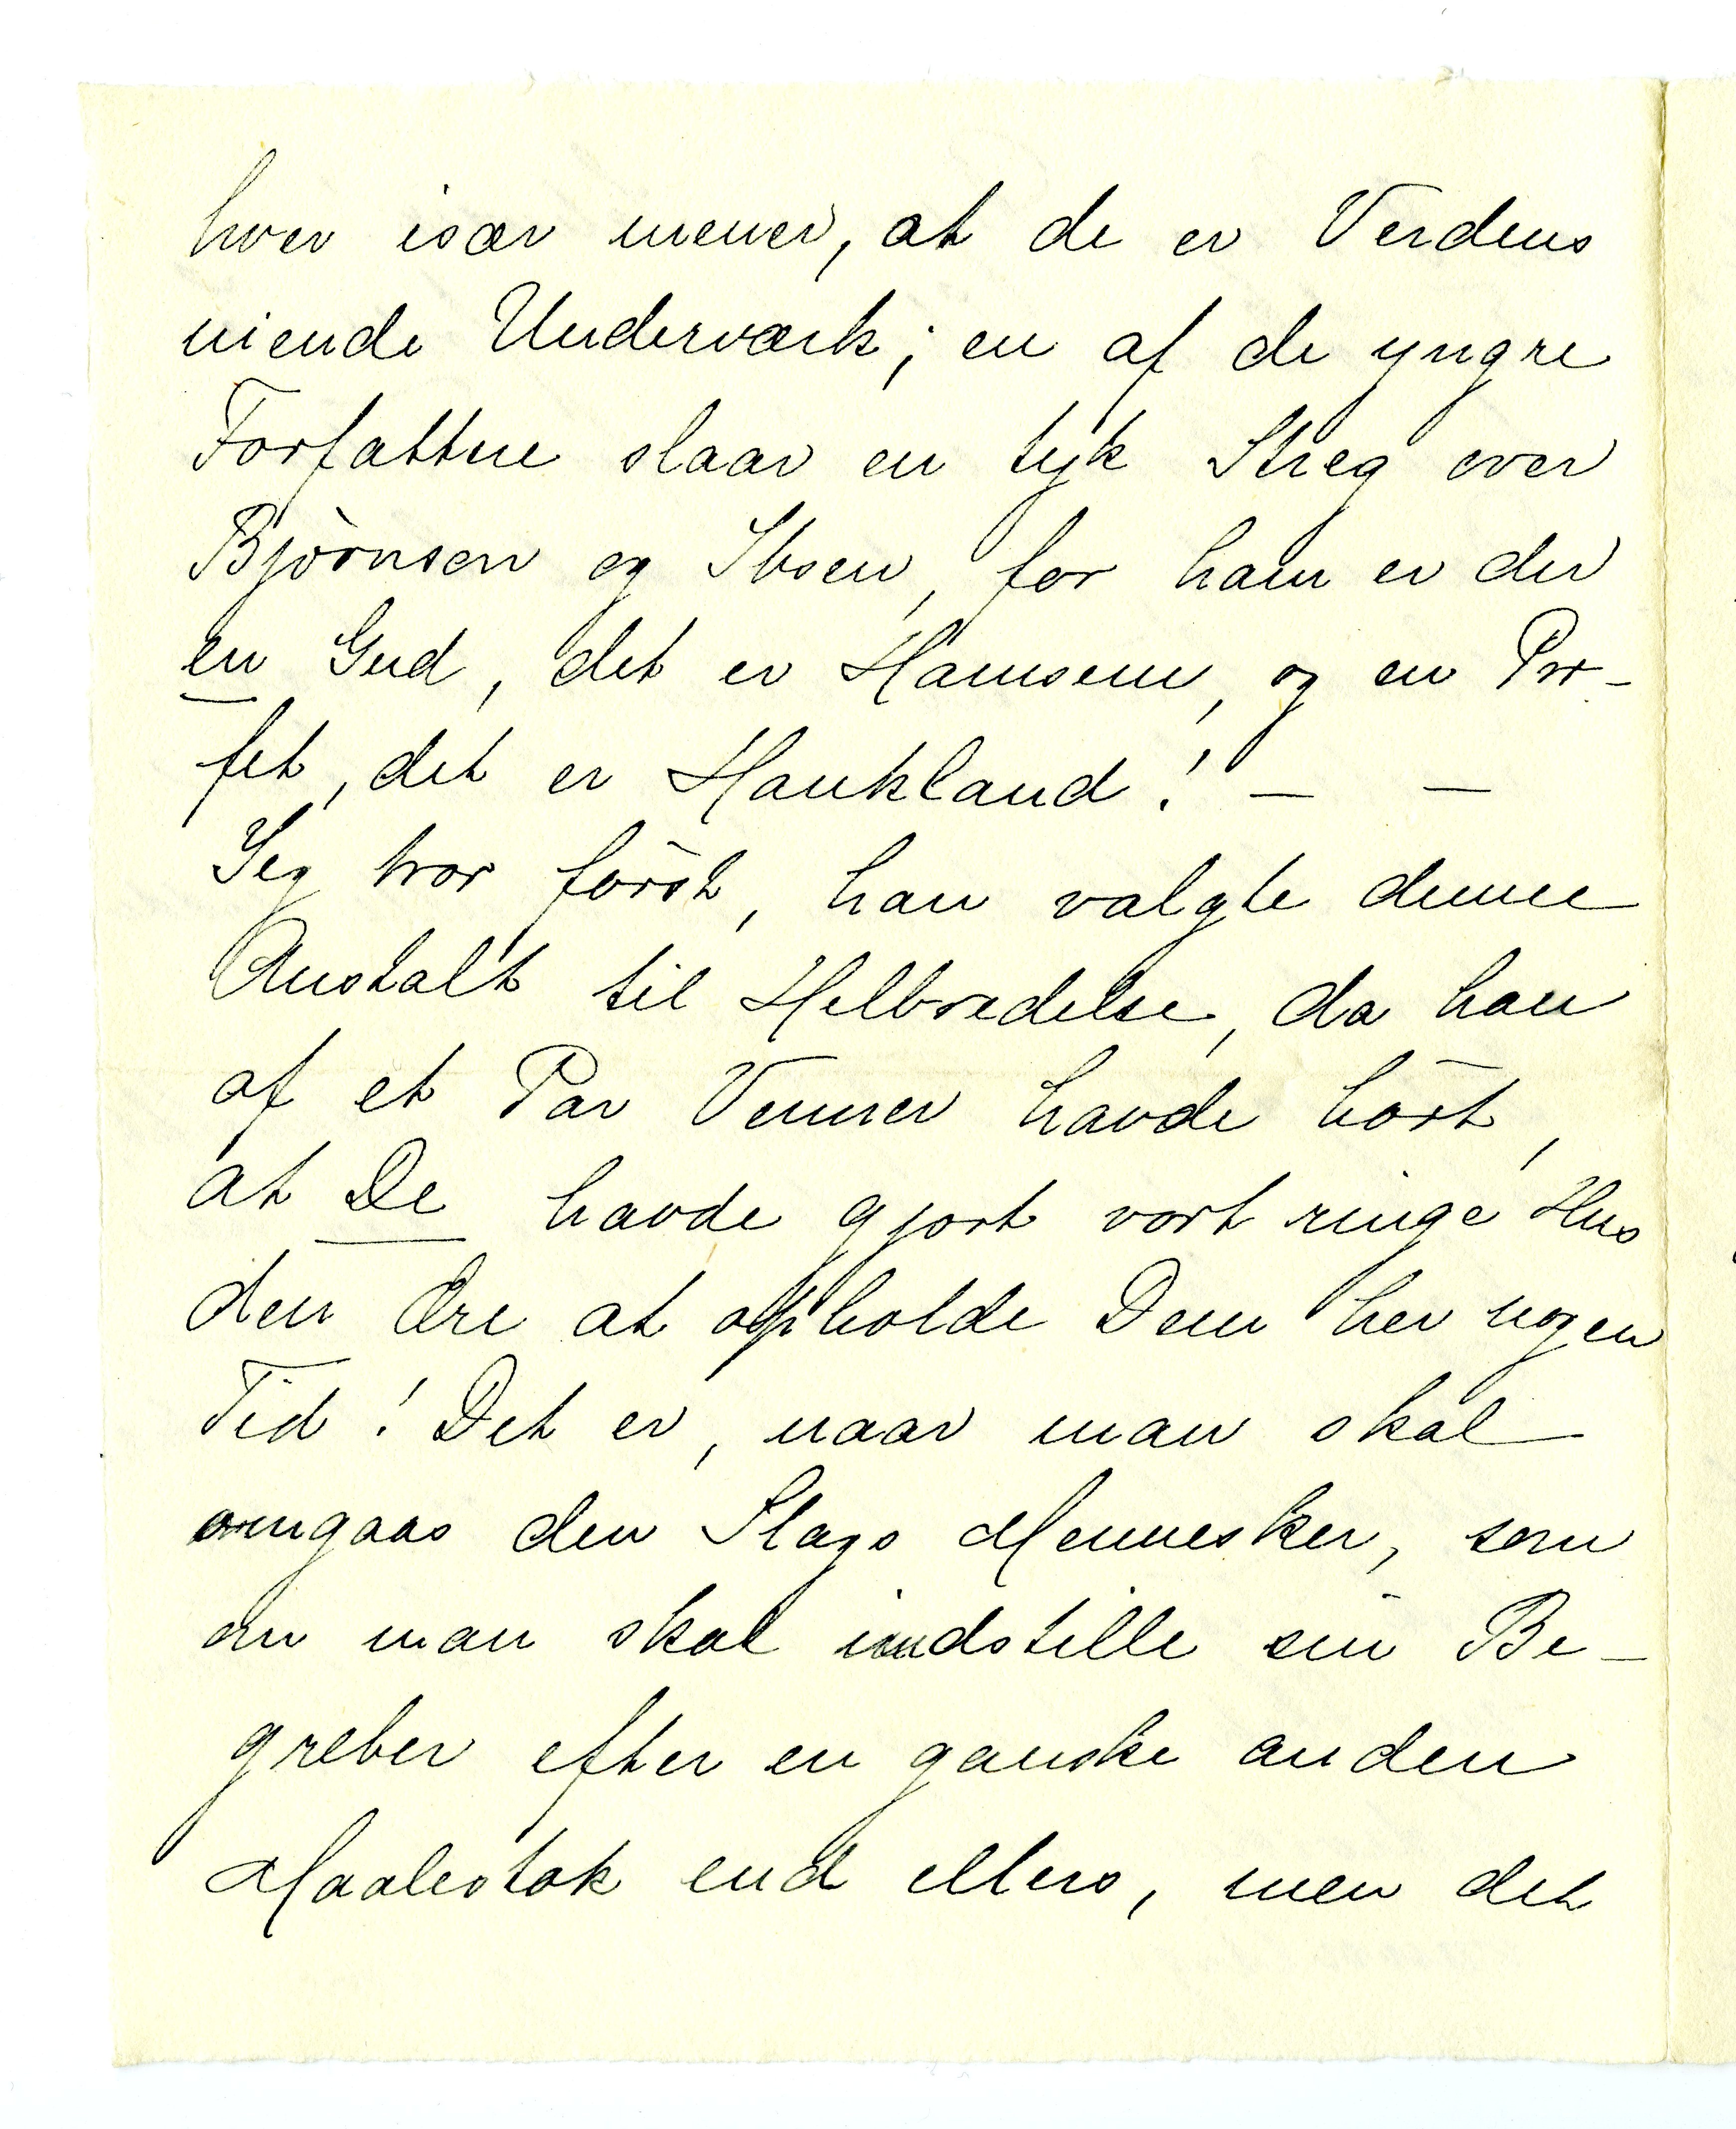 hver især mener, at de er Verdens
niende Underværk; en af de yngre
Forfattere slaar en tyk Streg over
Björnson og Ibsen, for ham er der
en Gud, det er Hamsun, og en Pro-
fet, det er Haukland! — —
Jeg tror först, han valgte denne
Anstalt til Helbredelse, da han
af et Par Venner havde hört,
at De havde gjort vort ringe Hus
den Ære at opholde Dem her nogen
Tid! Det er, naar man skal
omgaas den Slags Mennesker, som
om man skal indstille sin Be-
greber efter en ganske anden
Maalestok end ellers, men det